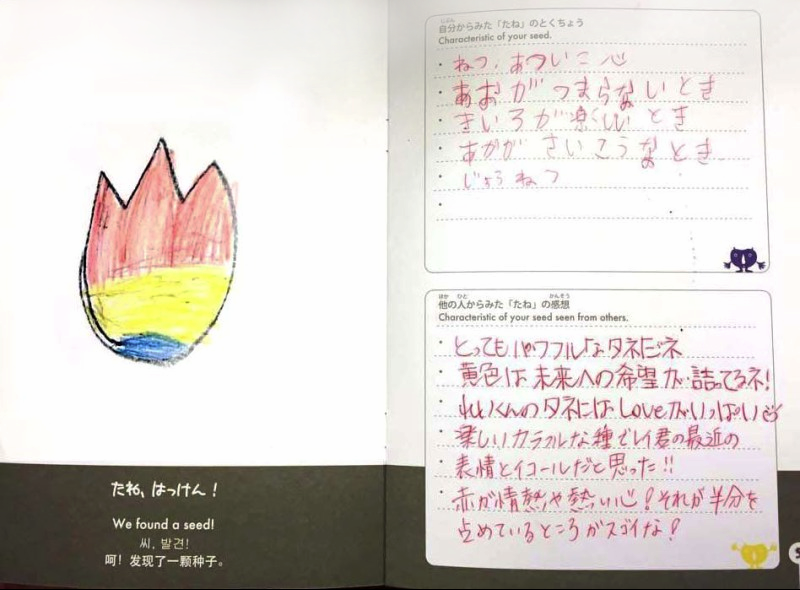 たね、はっけん!
We found a seed!
씨, 발견!
呵! 发现了一颗种子。
じぶん
自分からみた「たね」のとくちょう
Characteristic of your seed.
・ねつ、あつい心
・あおがつまらないとき
・きいろが楽しいとき
・あかがさいこうなとき
・じょうねつ
・
ほか ひと かんそう
他の人からみた「たね」の感想
Characteristic of your seed seen from others.
・とってもパワフルなタネだネ
・黄色は未来への希望が詰ってるネ!
・れいくんのタネにはLoveがいっぱい
・楽しいカラフルな種でレイ君の最近の
表情とイコールだと思った!!
・赤が情熱や熱い心!それが半分を
占めているところがスゴイな!